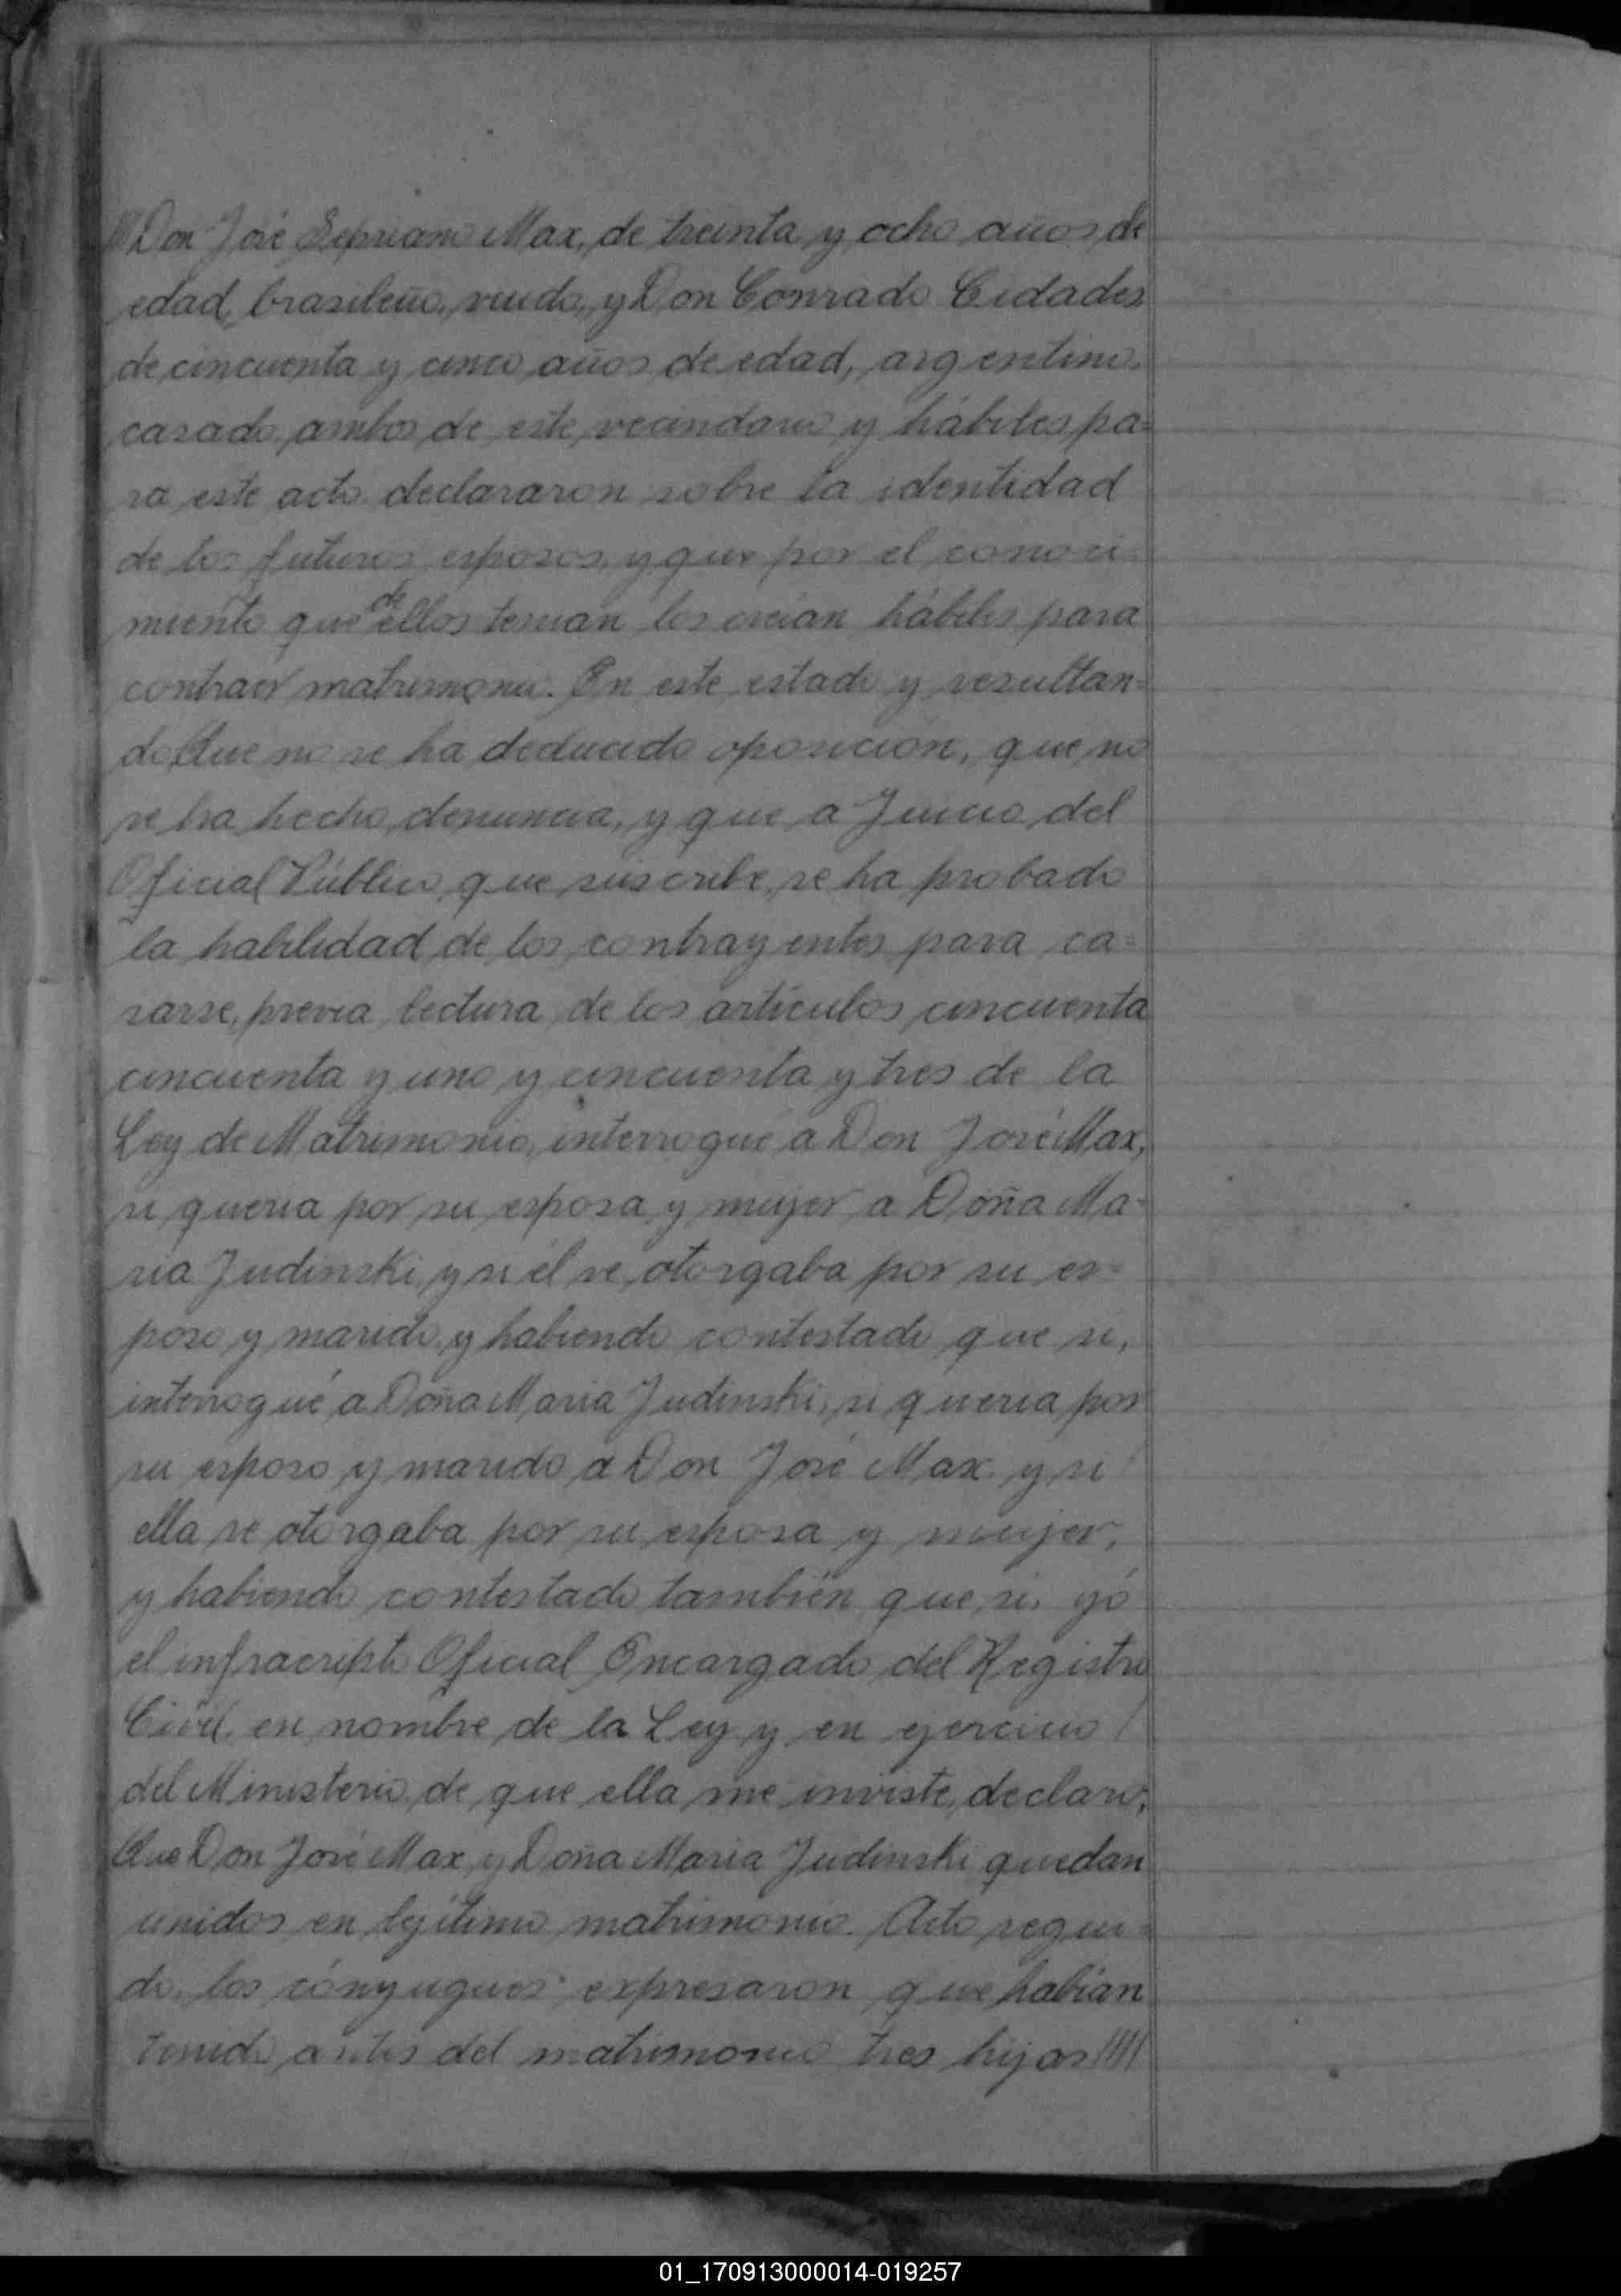 Don José Sepriano Max, de treinta y ocho años de
edad, brasileño, viudo, y Don Conrado Cidades
de cincuenta y cinco años de edad, argentino,
casado, ambos de este vecindario y hábiles pa=
ra este acto declararon sobre la identidad
de los futuros esposos, y que por el conoci=
miento que de ellos tenian los creian hábiles para
contraer matrimonio. En este estado y resultan=
do, Que no se ha deducido oposición, que no
se ha hecho denuncia, y que a Juicio del
Oficial Público, que suscribe, se ha probado
la habilidad de los contrayentes para ca=
sarse, previa lectura de los artículos cincuenta
cincuenta y uno y cincuenta y tres de la
Ley de Matrimonio, interrogué a Don José Max,
si queria por su esposa y mujer a Doña Ma-
ria Judinski, y si él se otorgaba por su es=
poso y marido, y habiendo contestado que si,
interrogué a Doña Maria Judinski, si queria por
su esposo y marido a Don José Max y si
ella se otorgaba por su esposa y mujer,
y habiendo contestado también que si, yó
el infracripto Oficial Encargado del Registro
Civil, en nombre de la Ley y en ejercicio
del Ministerio, de que ella me inviste, declaro;
Que Don José Max y Doña Maria Judinski quedan
unidos en lejítimo matrimonio. Acto segui=
do, los cónyugues expresaron que habian
tenido antes del matrimonio tres hijos////
01_170913000014-019257